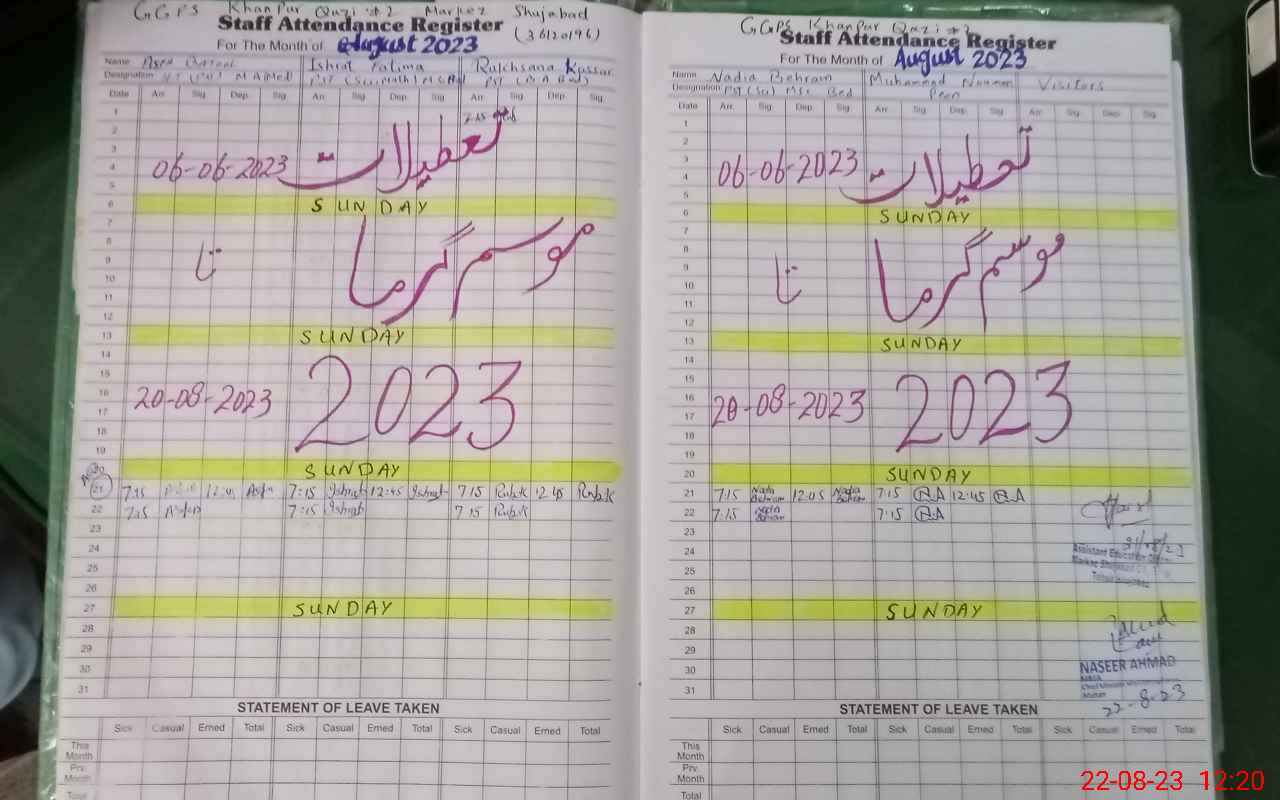 GGPS KhanPur Qazi #2 Markez Shujabad
Staff Attendance Register
(36120196)
For The Month of August 2023
Name Ishrat Fatima Rukhsana Kassar
Designation
Date Arr. Sig. Dep. Sig. Arr. Sig. Dep. Sig. Arr. Sig. Dep. Sig.
1
2
3
4
5
تعطیلات
06-06-2023
6 SUNDAY
7
8
9
10
11
12
موسم گرما
تا
13 SUNDAY
14
15
16
17
18
19
20-08-2023 2023
20 SUNDAY
21 7:15 12:45 Asfa 7:15 Ishrat 12:45 Ishrat 7 15 12 45
22 7:15 7:15 Ishrat 7 15
23
24
25
26
27 SUNDAY
28
29
30
31
STATEMENT OF LEAVE TAKEN
Sick Casual Erned Total Sick Casual Erned Total Sick Casual Erned Total
This Month
Prv. Month
Total
GGPS KhanPur Qazi #2
Staff Attendance Register
For The Month of August 2023
Name Nadia Behram Muhammad Nuaman Visitors
Designation PST (Sci) Msc Bed Peon
Date Arr. Sig. Dep. Sig. Arr. Sig. Dep. Sig. Arr. Sig. Dep. Sig.
1
2
3
4
5
تعطیلات
06-06-2023
6 SUNDAY
7
8
9
10
11
12
موسم گرما
تا
13 SUNDAY
14
15
16
17
18
19
20-08-2023 2023
20 SUNDAY
21 7:15 Nadia Behram 12:05 Nadia Behram 7:15 NA 12:45 NA
22 7:15 Nadia Behram 7:15 NA
23
24
25
26
Assistant Education
27 SUNDAY
28
29
30
31
NASEER AHMAD
22-8-23
STATEMENT OF LEAVE TAKEN
Sick Casual Erned Total Sick Casual Erned Total Sick Casual Erned Total
This Month
Prv. Month
Total
22-08-23 12:20